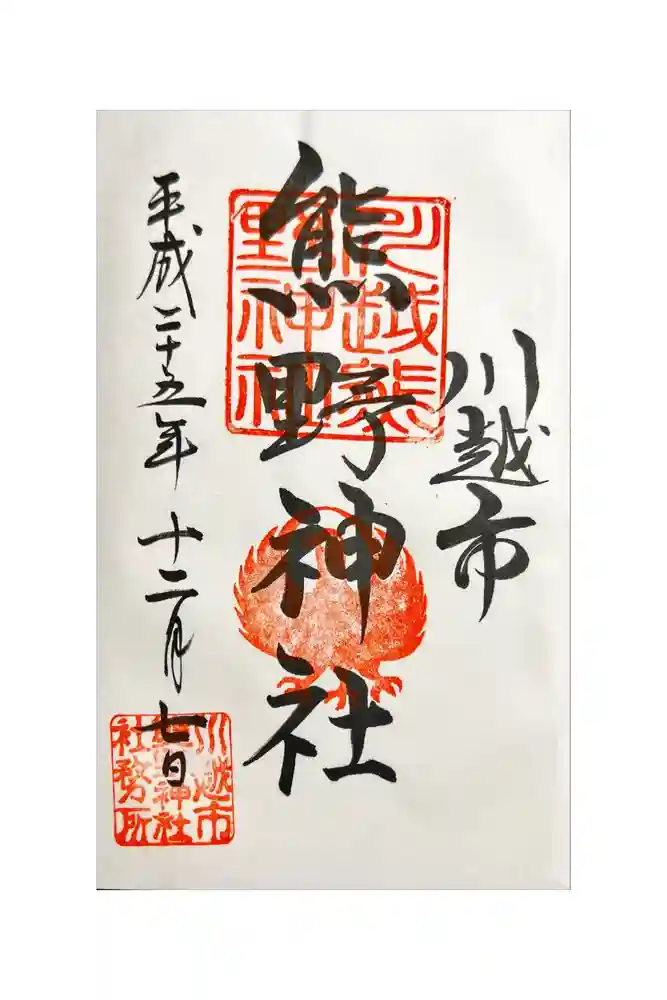 川越市
熊野神社
平成二十五年十二月七日
川越熊
野神社
川越市
熊野神社
社務所